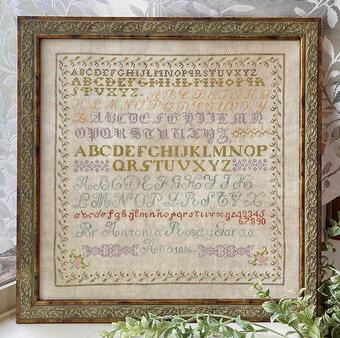 ABCDEFGHIJLMNOPQRSTUVXYZ
ABCDEFGHIJLMNOPQRIA
STUVXYZ.
KLMNOPQRSTUVXYZ
ABCDEFGHIJLMN
OPQRSTUVXYZ
ABCDEFGHIJKLMNOP
QRSTUVXYZ
ABCDEFGHIJK
LMNOPQRSTYZ
abcdefghijklmnopqrstuvxyz.12345
67890
Por Antonia Roset y Garcia
Año 1886.